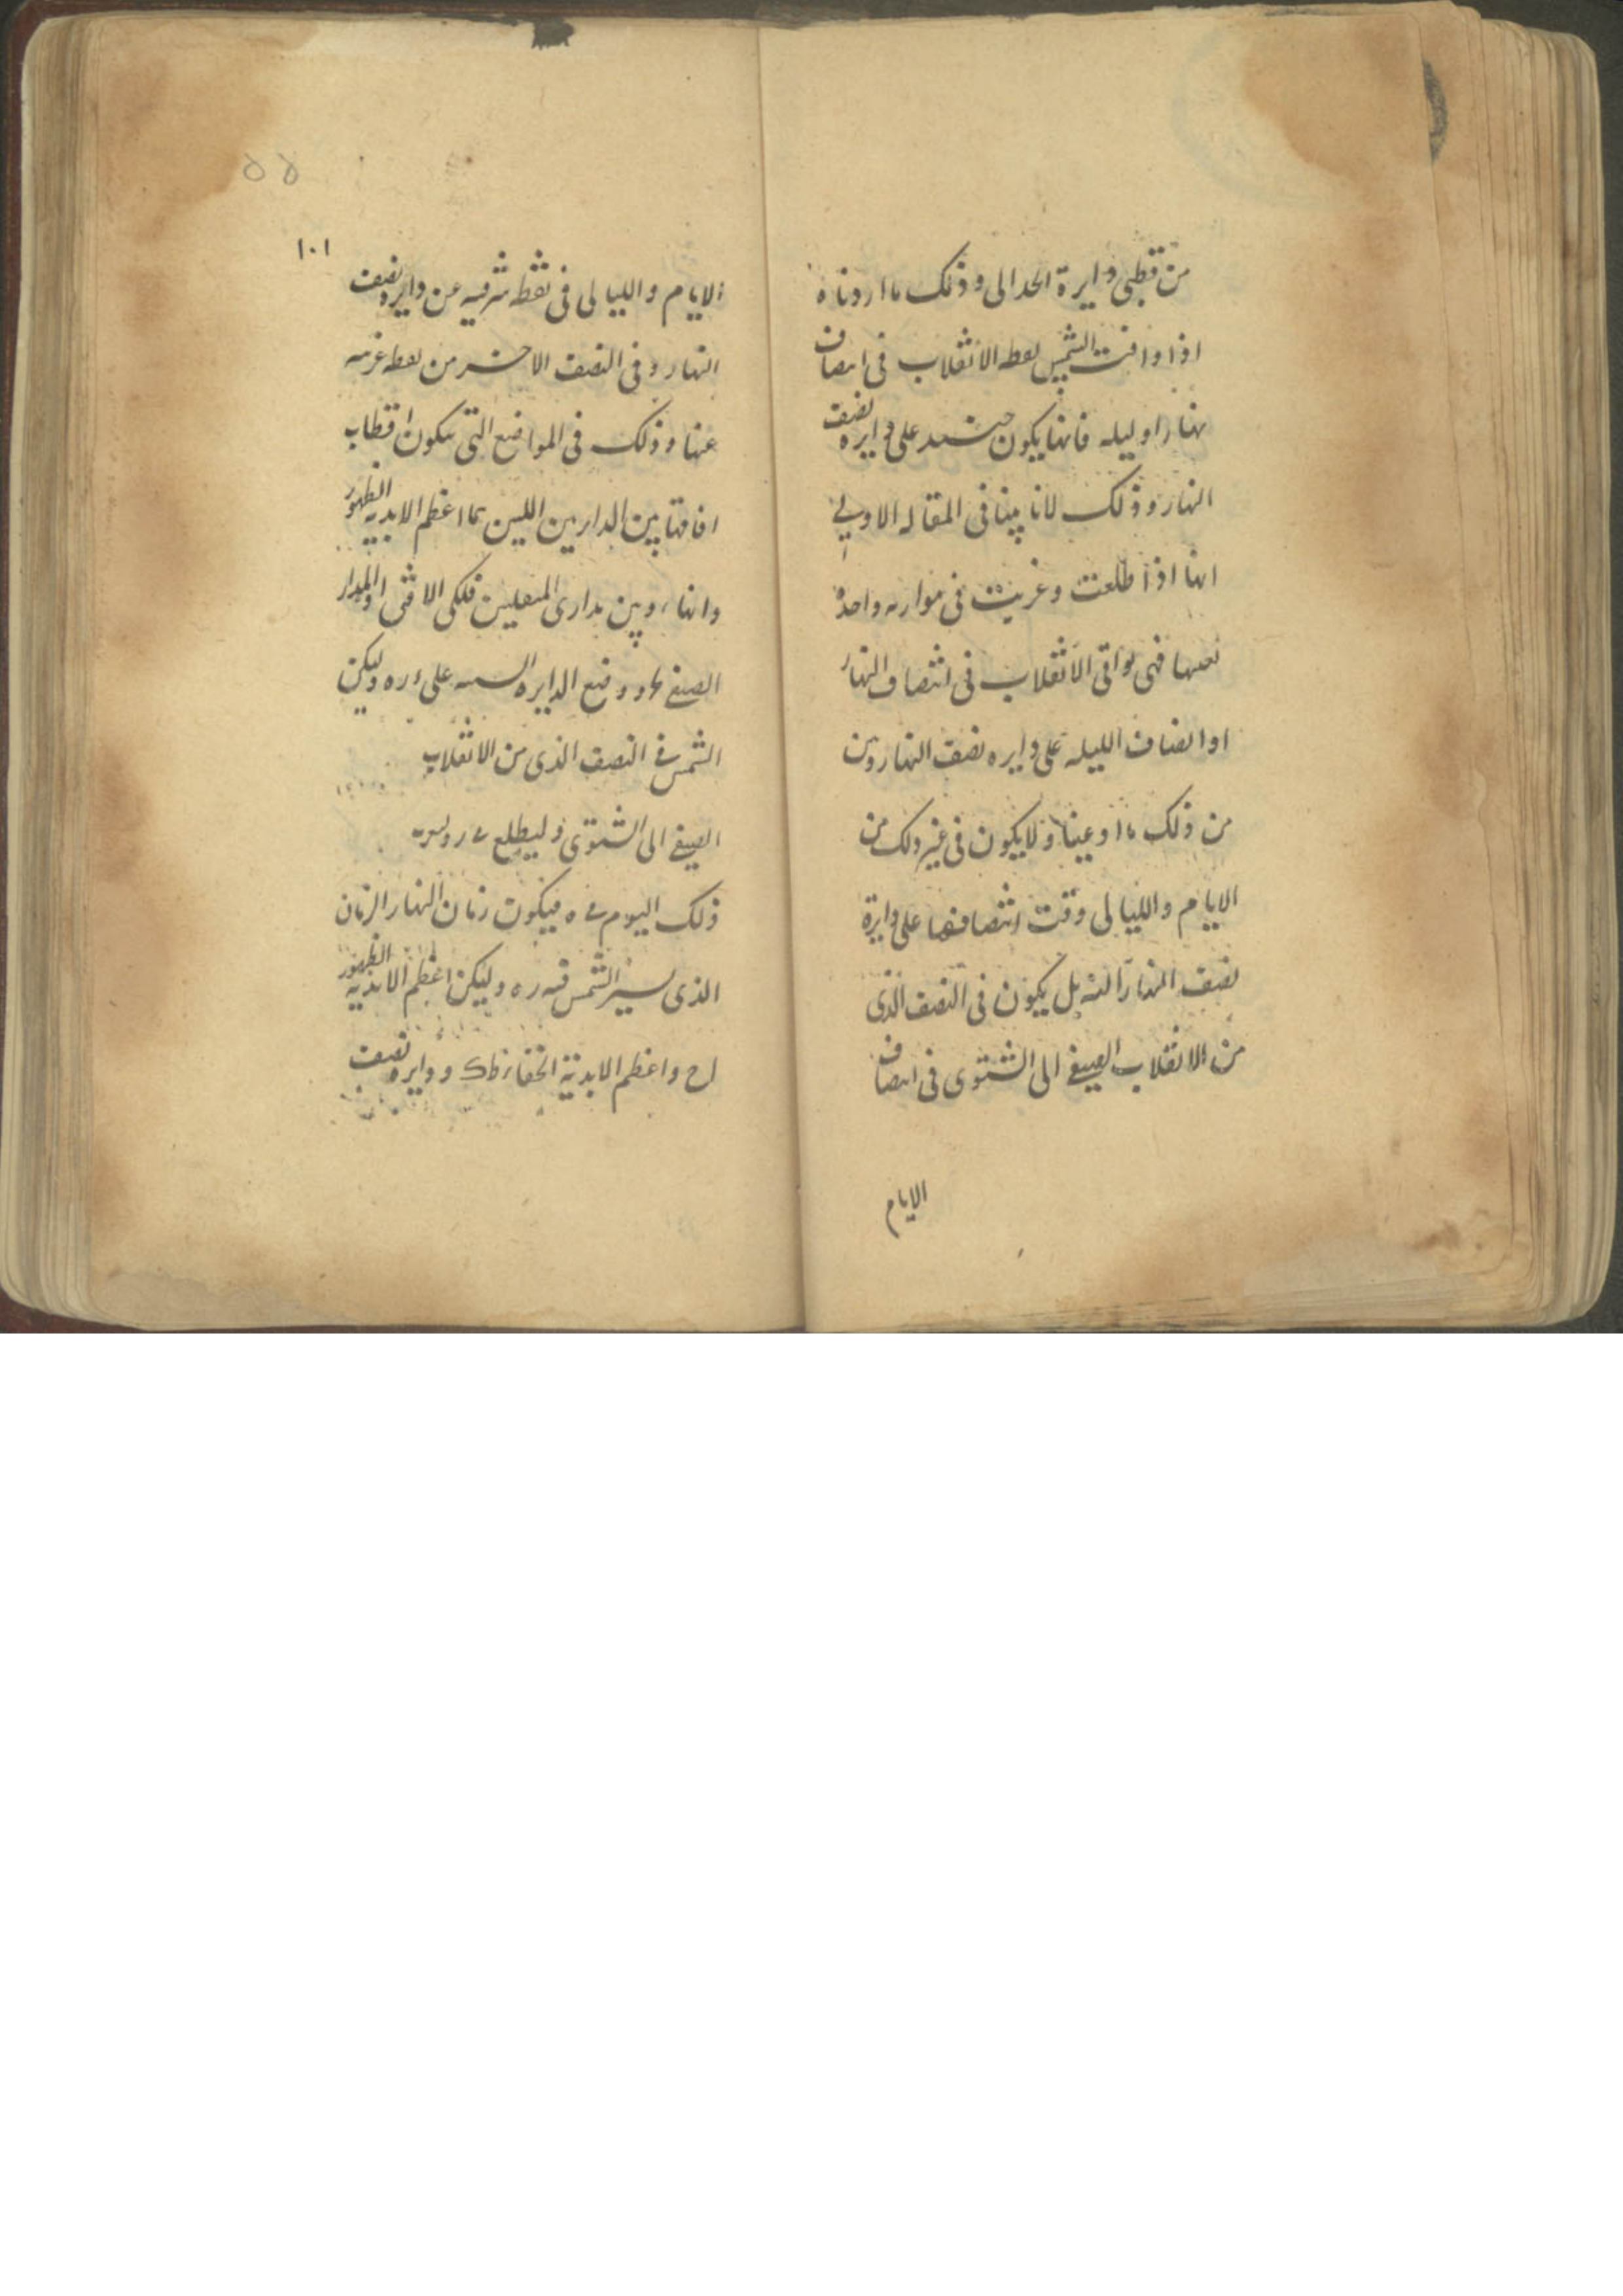 من قطبي دايرة الحدالى وذلك ما اردناه
اذا وافت الشمس نقطه الانقلاب فى انصاف
نهار او ليله فانها يكون حينئذ على دايره نصف
النهار وذلك لانا بينا فى المقاله الاولي
انها اذا طلعت وغربت فى موازيه واحده
بعينها فهى توافى الانقلاب فى انتصاف النهار
او انصاف الليله على دايره نصف النهار وبين
من ذلك ما اوعينا ولا يكون فى غير ذلك من
الايام والليالى وقت انتصافها على دايرة
نصف النهار البته بل يكون فى النصف الذى
من الانقلاب الصيفى الى الشتوى فى انصاف
الايام
١٠١
الايام والليالى فى نقط شرقيه عن دايره نصف
النهار وفى النصف الاخر من نقطه غربيه
عنها وذلك فى المواضع التى يكون اقطاب
افاقها بين الدارين اللين هما اعظم الابديه الظهور
والخفاء وبين مدارى المنقلبين فلكن الافق ا والمدار
الصيفى وضع الدايره على ره وليكن
الشمس فى النصف الذى من الانقلاب
الصيفى الى الشتوى وليطلع
ذلك اليوم فى ه فيكون زمان النهار الزمان
الذى يسير الشمس فيه ره وليكن اعظم الابديه الظهور
اح واعظم الابدية الخفا زطك ودايره نصف